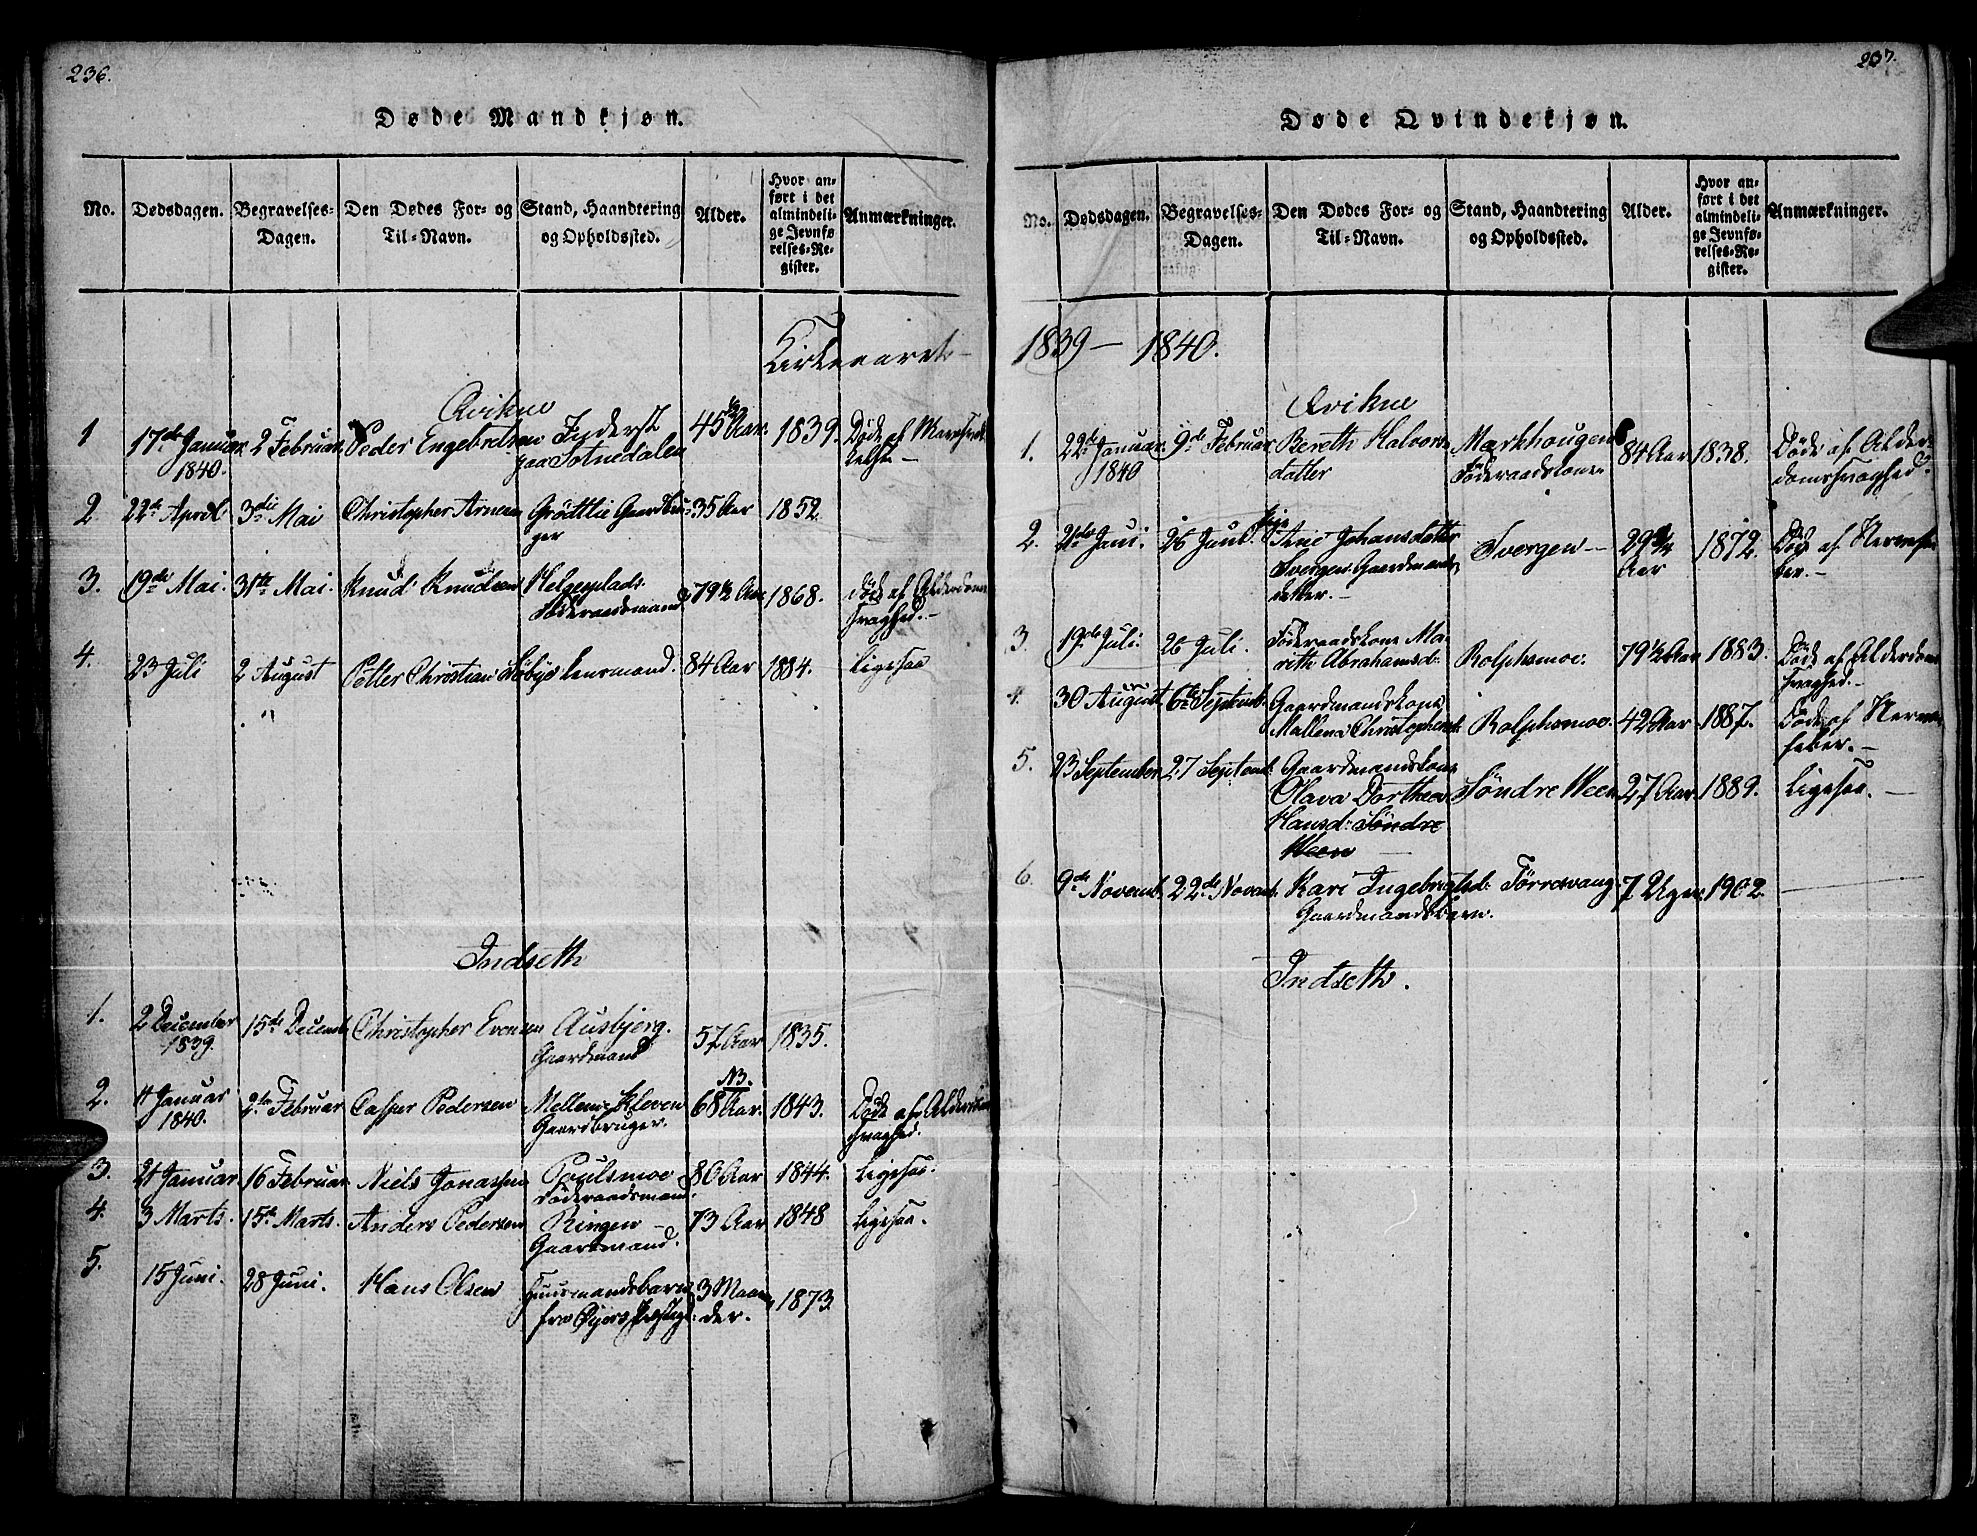 236.
Døde Mandkjøn.
No. Dødsdagen. Begravelses-Dagen. Den Dødes For- og Til-Navn. Stand, Haandtering og Opholdssted. Alder. Hvor anført i det almindelige Jevnførelses-Register. Anmærkninger.
Kirkeaaret
Qvikne
1 17de Januar 1840. 2 Februar Peder Engebretsen Inderst paa Sotnedalen 45½ Aar. 1839. Døde af
2 22de April 3die Mai Christopher Arnesen Grøttlie Gaardbruger 35 Aar 1852
3. 19de Mai. 31te Mai. Knud Knudsen Helgeplads. Føderaadsmand 79½ Aar 1868. død af Alderdoms svaghed.
4. 23 Juli 2 August Petter Christian Lensmand. 84 Aar 1884. Ligesaa
Indseth
1. 2 December 1839. 15de Decemb Christopher Evensen Ausbjerg. Gaardmand 57 Aar 1835.
2. 4 Januar 1840. 2de Februar Casper Pedersen Mellem-Kleven Gaardbruger. NB. 68 Aar. 1843. Døde af Alderdoms svaghed.
3. 21 Januar. 16 Februar Niels Jonassen Poulsmoe Føderaadsmand. 80 Aar 1844. Ligesaa.
4. 3 Marts. 15de Marts. Anders Pedersen Ringen Gaardmand. 73 Aar 1848 Ligesaa.
5. 15 Juni. 28 Juni. Hans Olsen Huusmandsbarn fra 3 Maaneder. 1873.
237.
Døde Qvindekjøn.
No. Dødsdagen. Begravelses-Dagen. Den Dødes For- og Til-Navn. Stand, Haandtering og Opholdssted. Alder. Hvor anført i det almindelige Jevnførelses-Register. Anmærkninger.
1839 — 1840.
Qvikne
1. 22de Januar 1840 9de Februar Bereth Halvorsdatter Markhougen Føderaadskone 84 Aar 1838. Døde af Alderdomssvaghed.
2. Juni. 26 Juni. Pige Ane Johansdatter Tvergen Gaardmandsdatter. Tvergen 29¾ Aar 1872. Død af Nervefeber.
3. 19de Juli. 26 Juli. Føderaadskone Marith Abrahamsd: Rolphsmoe. 79½ Aar 1883. Døde af Alderdoms svaghed.
4. 30 August 6te Septemb. Gaardmandskone Mallena Christophersd: Rolphsmoe. 42 Aar 1887. Døde af Nervefeber.
5. 23 September 27 Septemb. Gaardmandskone Olava Dorthea Hansd: Søndre Ween Søndre Ween 27 Aar 1889. Ligesaa.
6. 9de Novemb. 22de Novemb. Kari Ingebrigtsd: Gaardmandsbarn. Tørresvang 7 Uger. 1902.
Indseth.